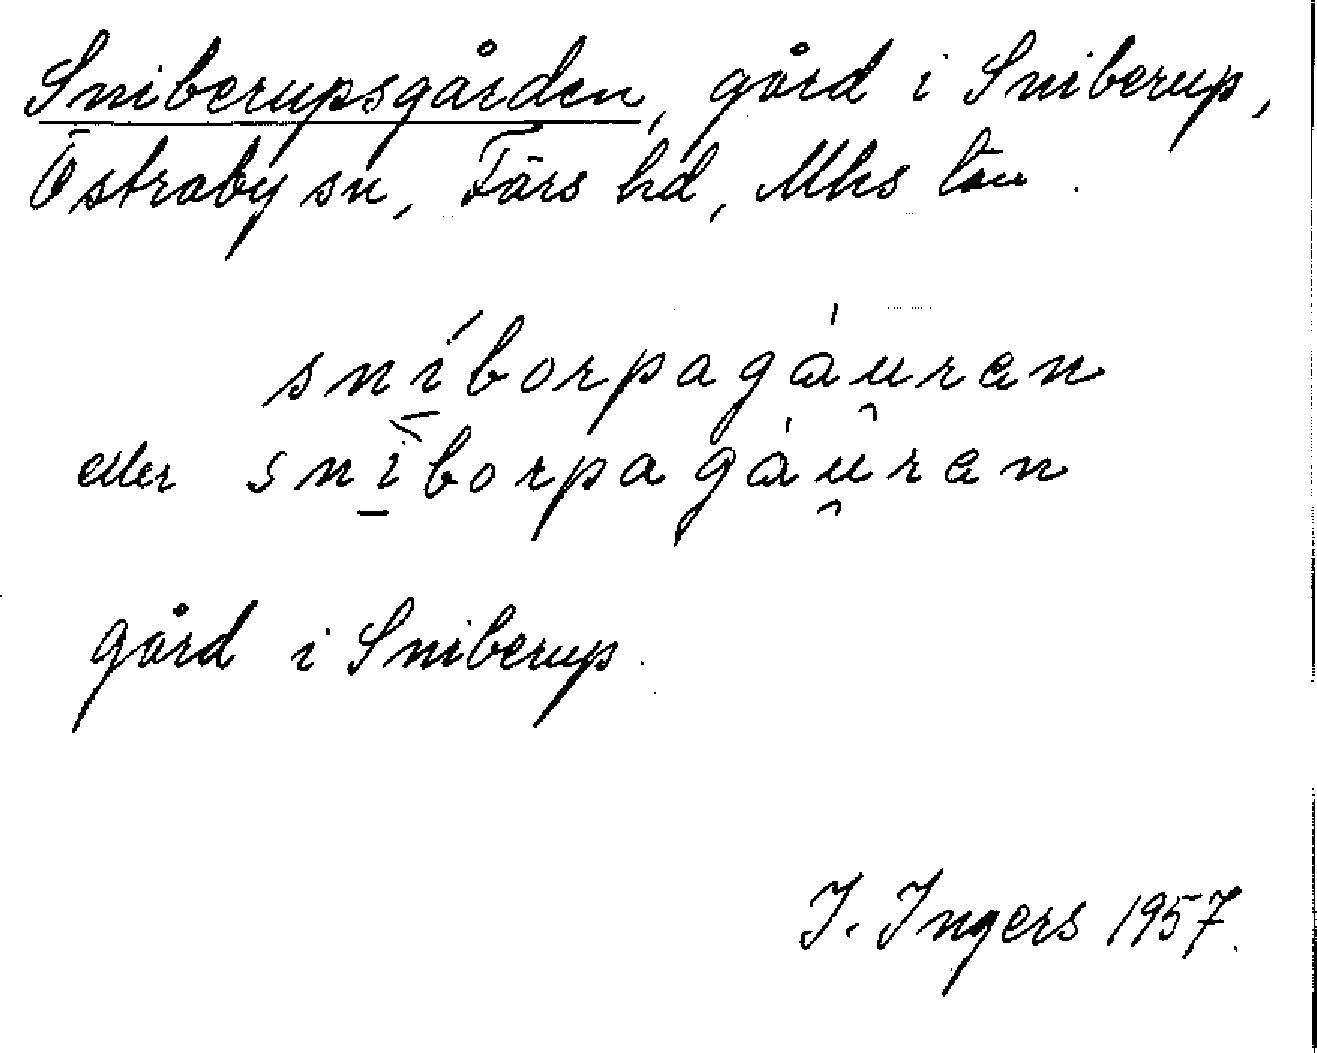 Sniberupsgården, gård i Sniberup,
Östraby sn, Färs hd, Mhs län.
sní̱borpagáu̯ran
eller snì̱borpagáu̯ran
gård i Sniberup.
I. Ingers 1957.